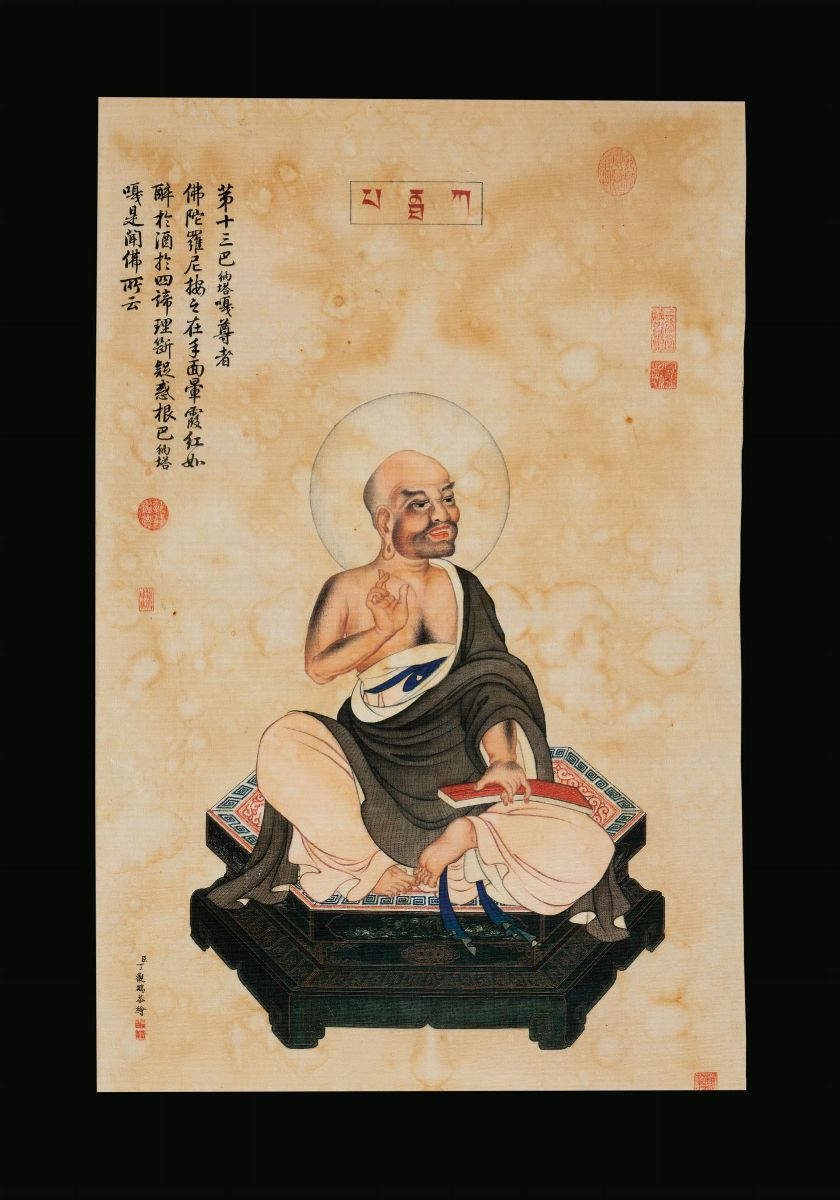 第十三巴納塔嘎尊者
佛陀羅尼按之在手面暈霞紅如
醉於酒於四諦理斷疑惑根巴納塔
嘎是聞佛所云
臣丁觀鵬恭繪